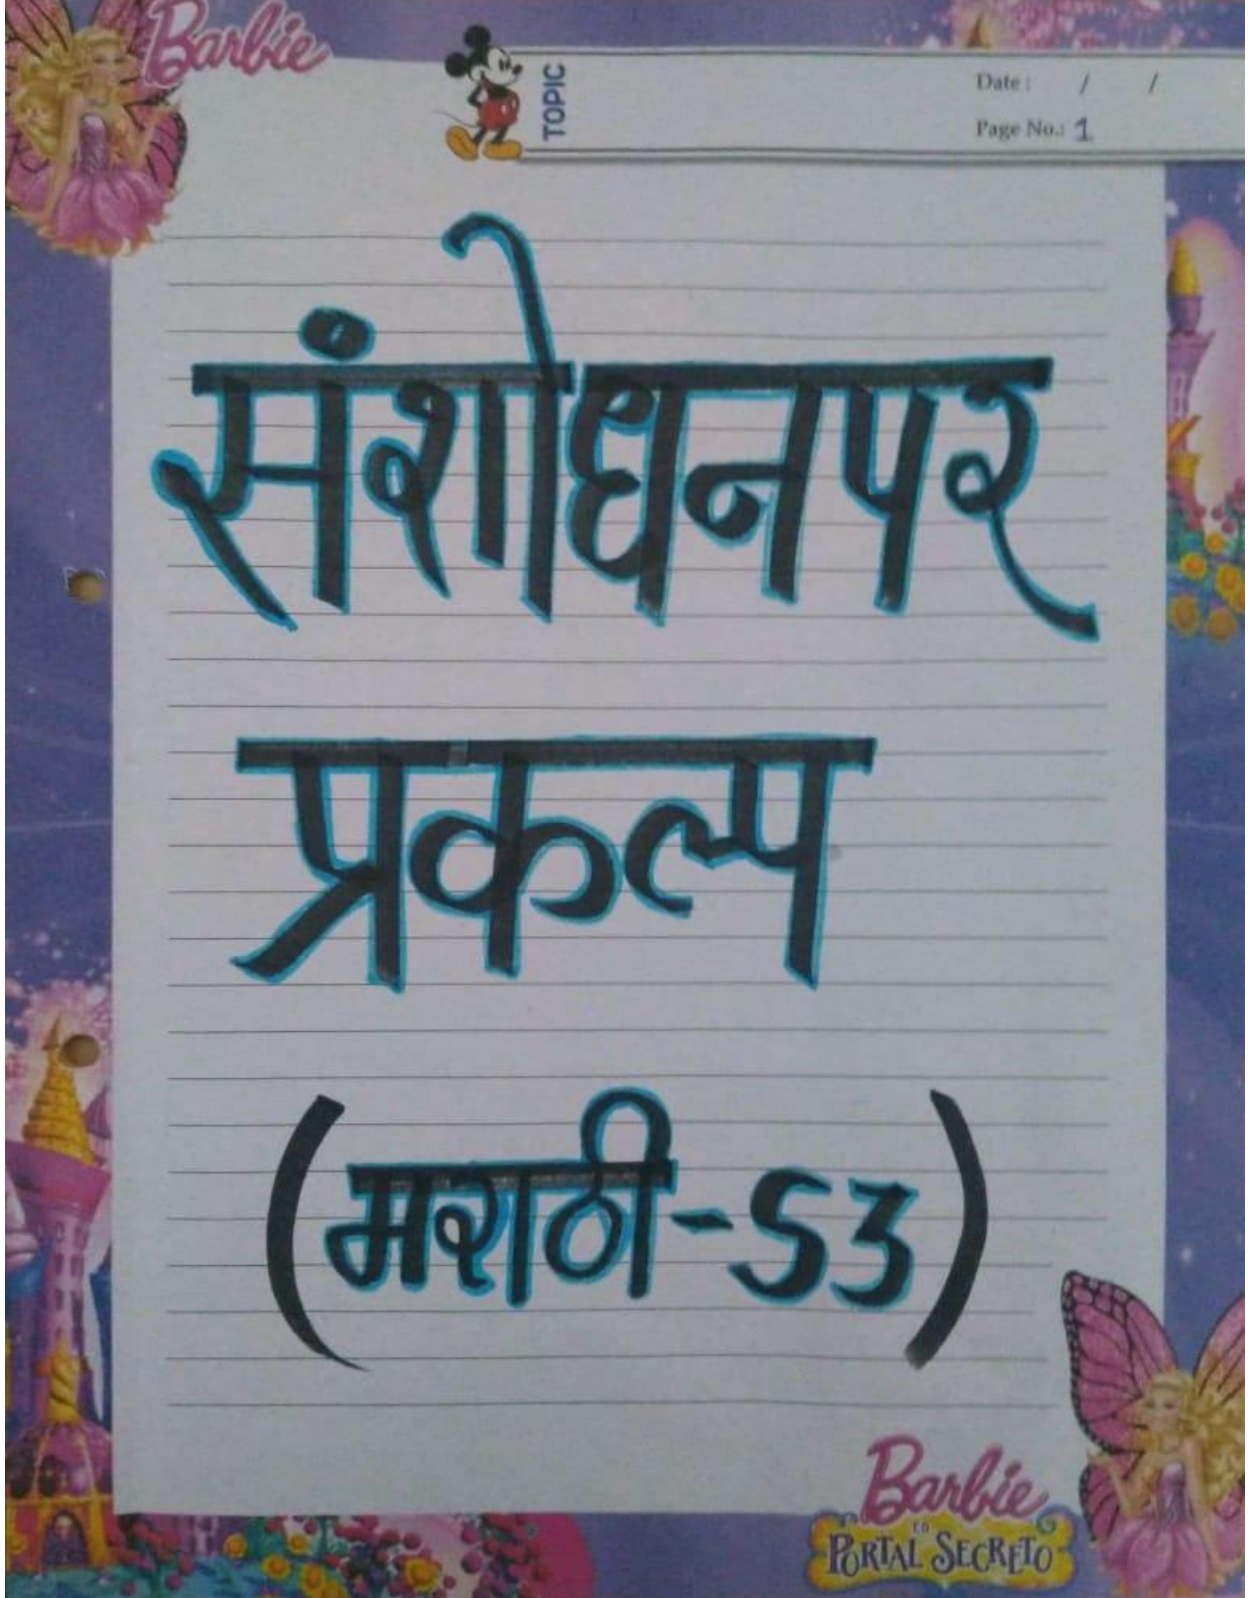 Barbie
TOPIC
Date : / /
Page No.: 1
संशोधनपर
प्रकल्प
(मराठी-S3)
Barbie
EO
PORTAL SECRETO